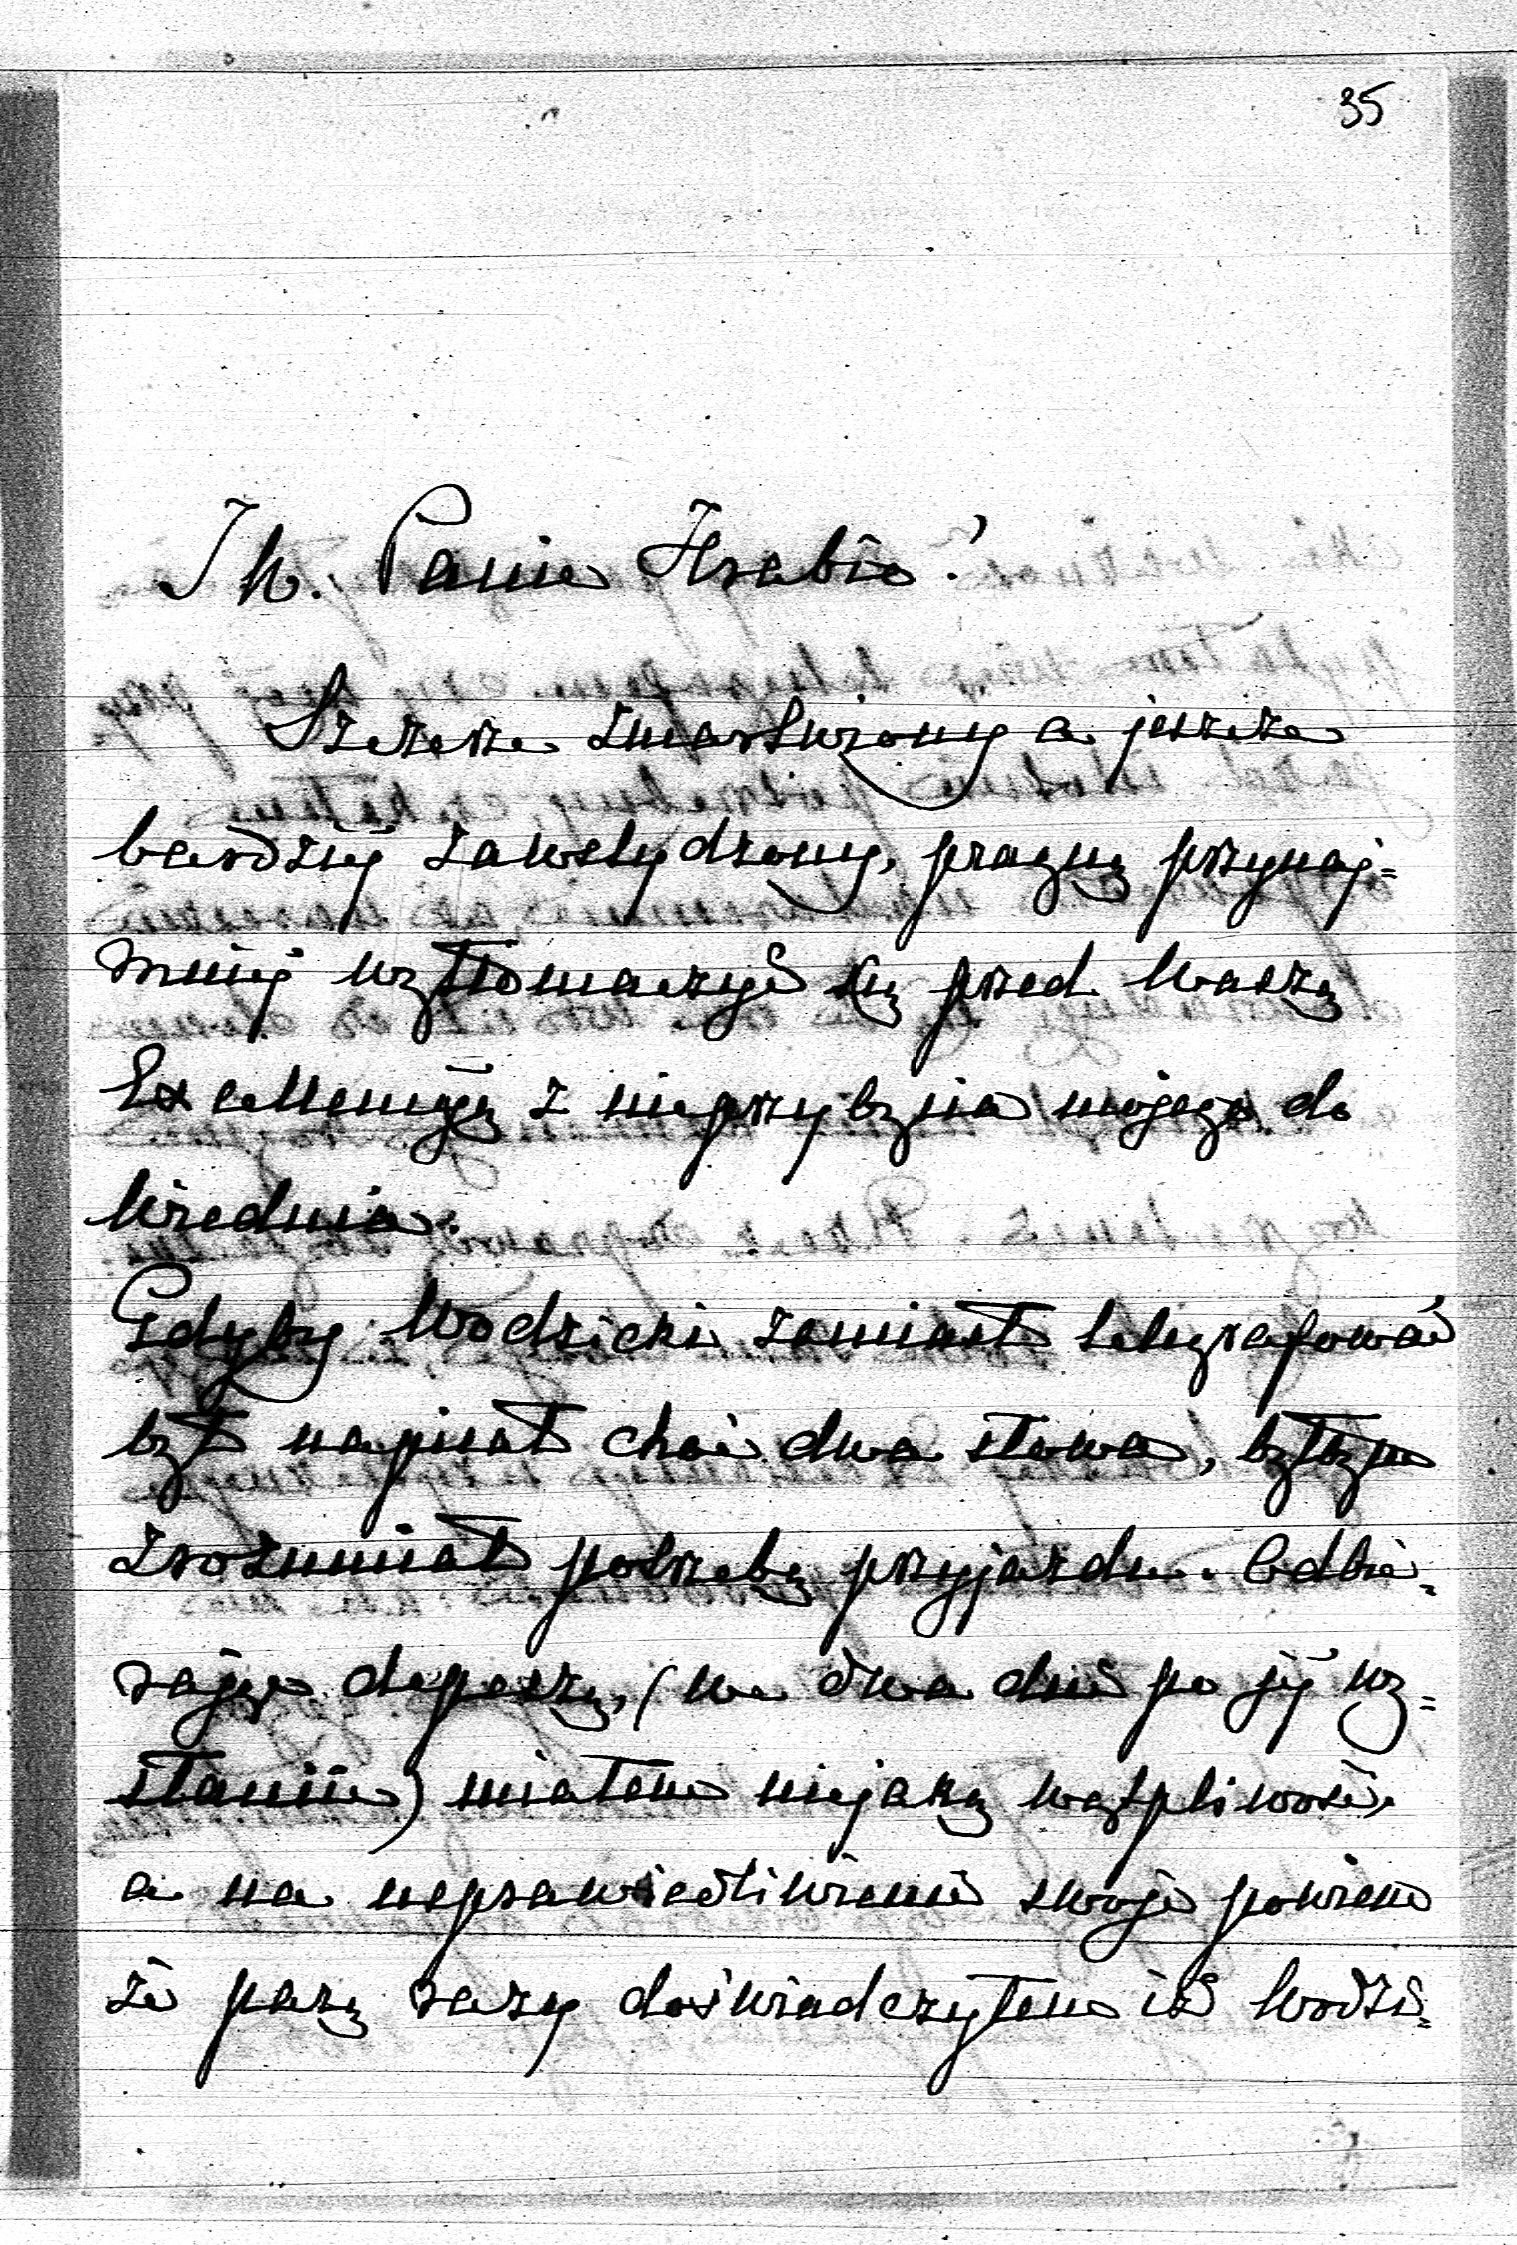 35
JW. Panie Hrabio!
Szczerze zmartwiony a jeszcze
bardziéj zawstydzony, pragnę przynaj=
mniéj wytłomaczyć się przed Waszą
Excellencyą z nieprzybycia mojego do
Wiednia.
Gdyby Wodzicki zamiast telegrafować
był napisał choć dwa słowa, byłbym
zrozumiał potrzebę przyjazdu. Odbie=
rając depeszę, (we dwa dni po jéj wy=
słaniu) miałem niejaką wątpliwość,
a na usprawiedliwienie swoje powiem
że parę razy doświadczyłem iż Wodzi=